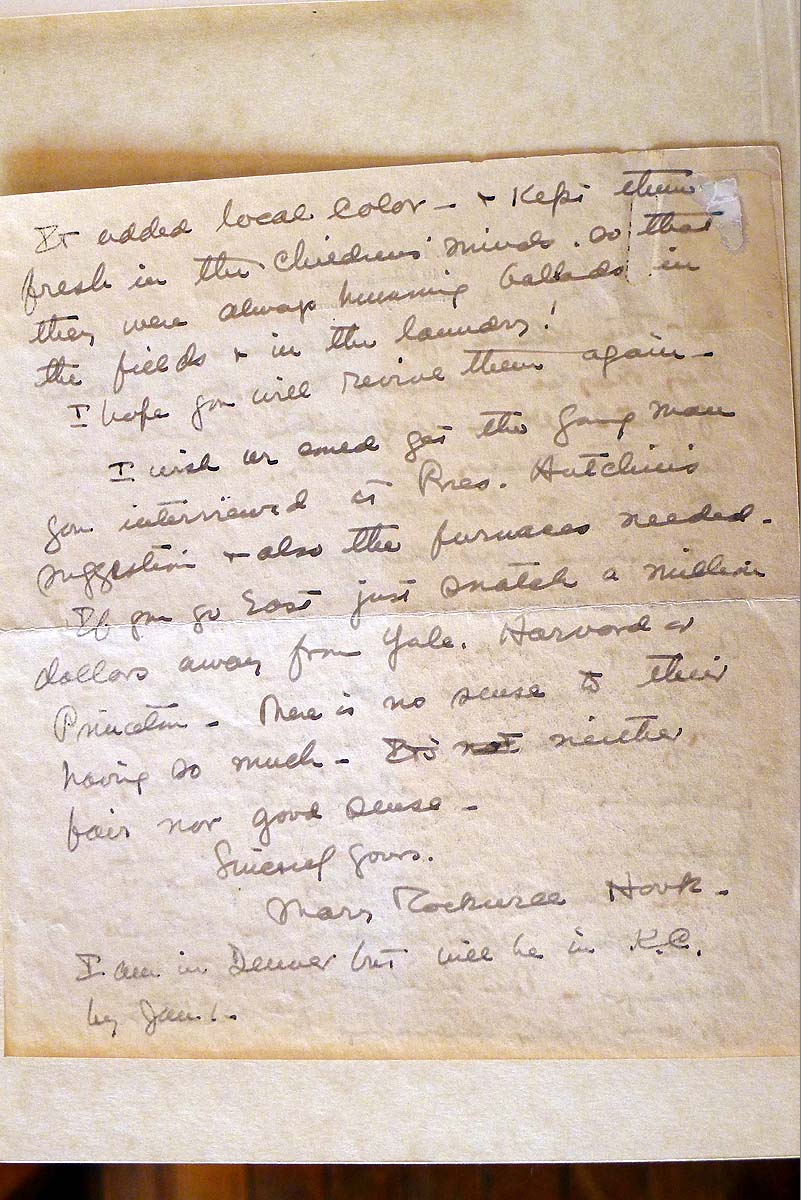 It added local color - & kept them
fresh in the childrens' minds. so that
they were always humming ballads in
the fields & in the laundry!
I hope you will revive them again -
I wish we could get the young man
you interviewed at Pres. Hutchins
suggestion & also the furnaces needed.
If you go East just snatch a million
dollars away from Yale. Harvard or
Princeton - There is no sense to their
having so much - Its not neither
fair nor good sense -
Sincerely yours.
Mary Rockwell Hook -
I am in Denver but will be in K.C.
by Jan. 1. -